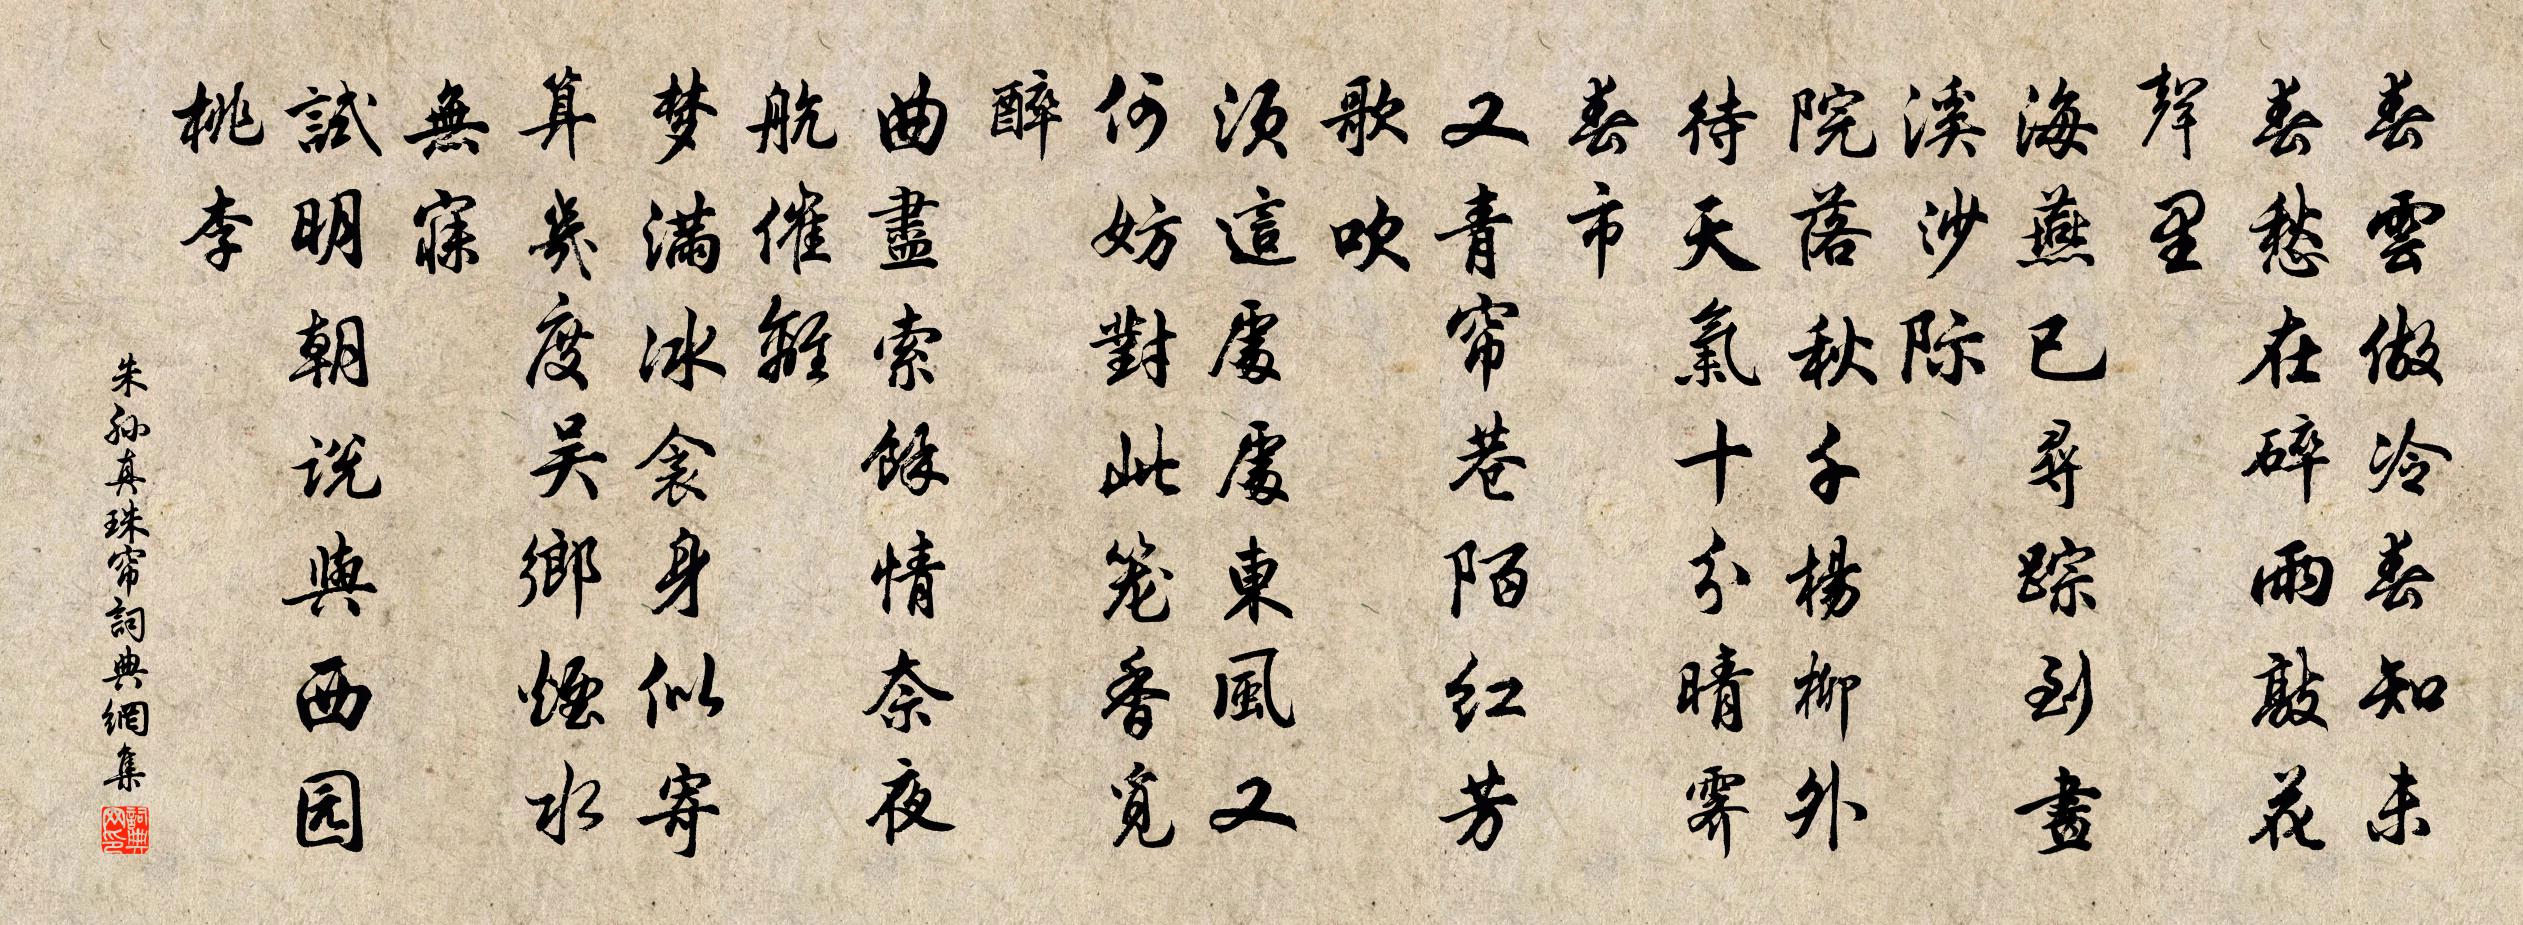 春雲做冷春知未
春愁在碎雨敲花
聲里
海燕已尋踪到畫
溪沙际
院落秋千楊柳外
待天氣十分晴霽
春市
又青帘巷陌红芳
歌吹
須這處處東風又
何妨對此笼香覓
醉
曲盡索餘情奈夜
航催離
梦满冰衾身似寄
算幾度吴鄉煙水
無寐
試明朝説與西园
桃李
朱孫真珠帘詞典網集
詞典网印